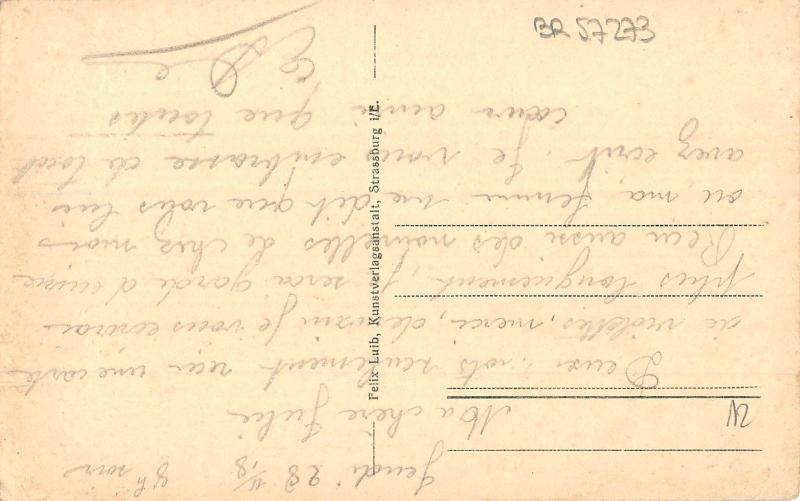 BR 57273
Jeudi 28 11/18 8h soir
Ma chère Julie
Deux mots seulement reçu une carte
de violettes, merci, demain je vous écrirai
plus longuement, je serai garde d'écurie
Reçu aussi des nouvelles de chez moi
ou ma femme me dit que vous lui
avez écrit. Je vous embrasse de tout
cœur ainsi que toutes
Felix Luib, Kunstverlagsanstalt, Strassburg i/E.